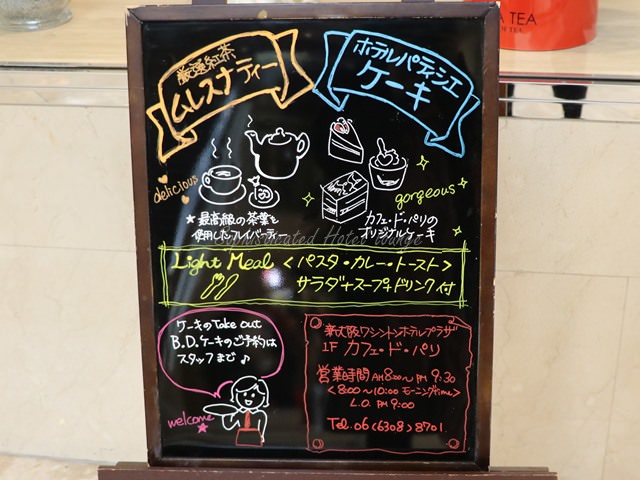 TEA TEA
厳選紅茶
ムレスナティー
ホテルパティシエ
ケーキ
delicious
gorgeous
★最高級の茶葉を
使用したフレイバーティー
カフェ・ド・パリの
オリジナルケーキ
Light Meal <パスタ・カレー・トースト>
サラダ+スープ+ドリンク付
ケーキのTake out
B.D.ケーキのご予約は
スタッフまで♪
welcome★
新大阪ワシントンホテルプラザ
1F カフェ・ド・パリ
営業時間 AM8:00〜PM9:30
<8:00〜10:00 モーニングtime>
L.O. PM9:00
Tel. 06(6308)8701